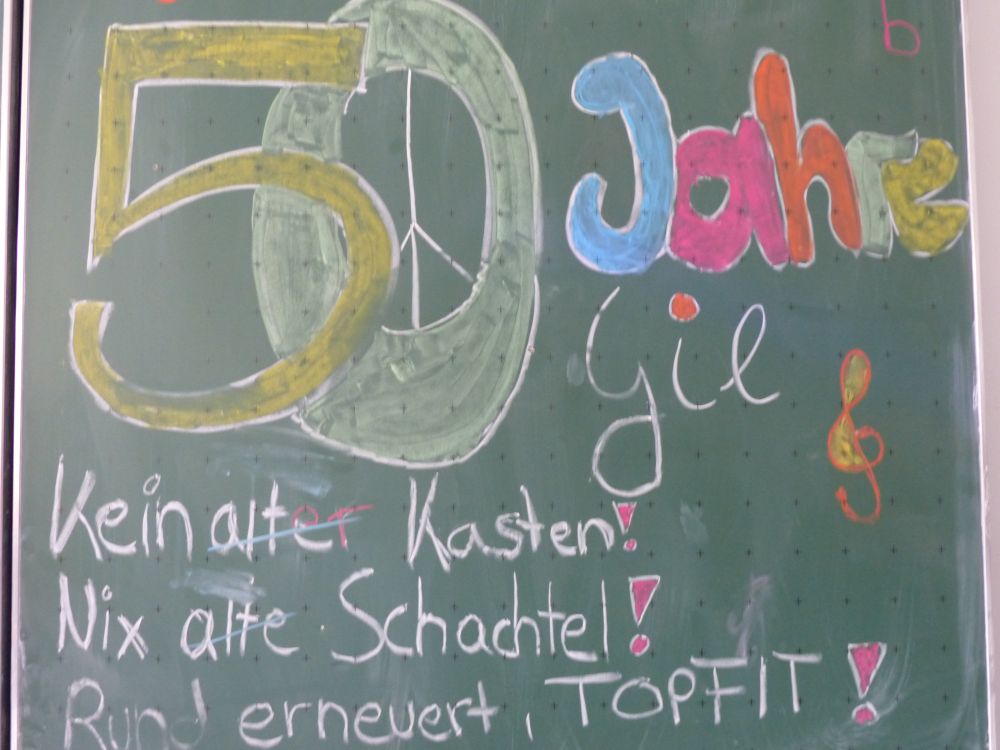 50 Jahre
Gil
Kein alter Kasten!
Nix alte Schachtel!
Rund erneuert, TOPFIT!